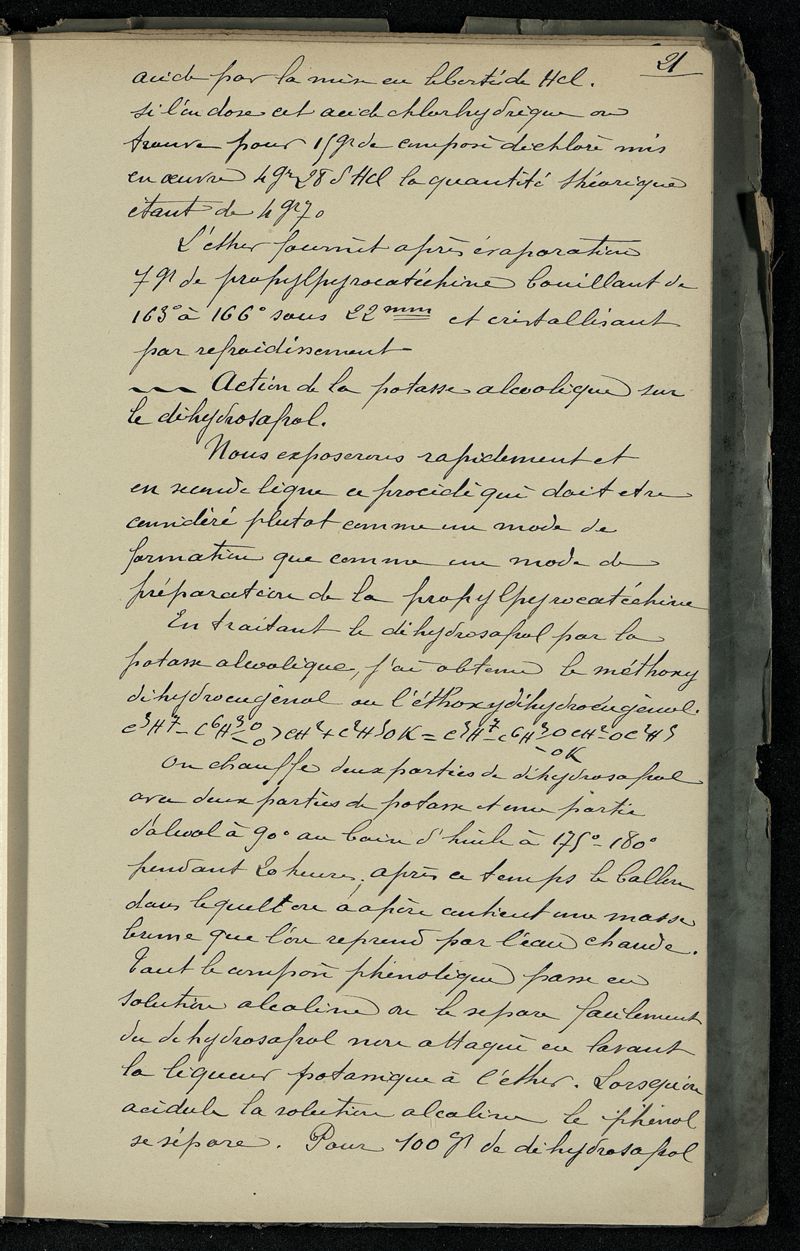 21
acide par la mise en liberté de Hcl.
si l'on dose cet acide chlorhydrique on
trouve pour 15gr de composé dichloré mis
en œuvre 4gr28 d'Hcl la quantité théorique
étant de 4gr70
L'éther fournit après évaporation
7gr de propylpyrocatéchine bouillant de
163° à 166° sous 22mm et cristallisant
par refroidissement
Action de la potasse alcoolique sur
le dihydrosafrol.
Nous exposerons rapidement et
en seconde ligne ce procédé qui doit etre
considéré plutot comme un mode de
formation que comme un mode de
préparation de la propylpyrocatéchine
En traitant le dihydrosafrol par la
potasse alcoolique, j'ai obtenu le méthoxy
dihydroeugénol ou l'éthoxydihydroeugénol.
C3H7-C6H3-O-O>CH2+C2H5OK=C3H7-C6H3OCH2OC2H5
-OK
On chauffe deux parties de dihydrosafrol
avec deux parties de potasse et une partie
d'alcool à 90° au bain d'huile à 175°-180°
pendant 20 heures; après ce temps le ballon
dans lequel on a opéré contient une masse
brune que l'on reprend par l'eau chaude.
Tout le composé phénolique passe en
solution alcaline on le separe facilement
du dihydrosafrol non attaqué en lavant
la liqueur potassique à l'éther. Lorsqu'on
acidule la solution alcaline le phénol
se sépare. Pour 100gr de dihydrosafrol